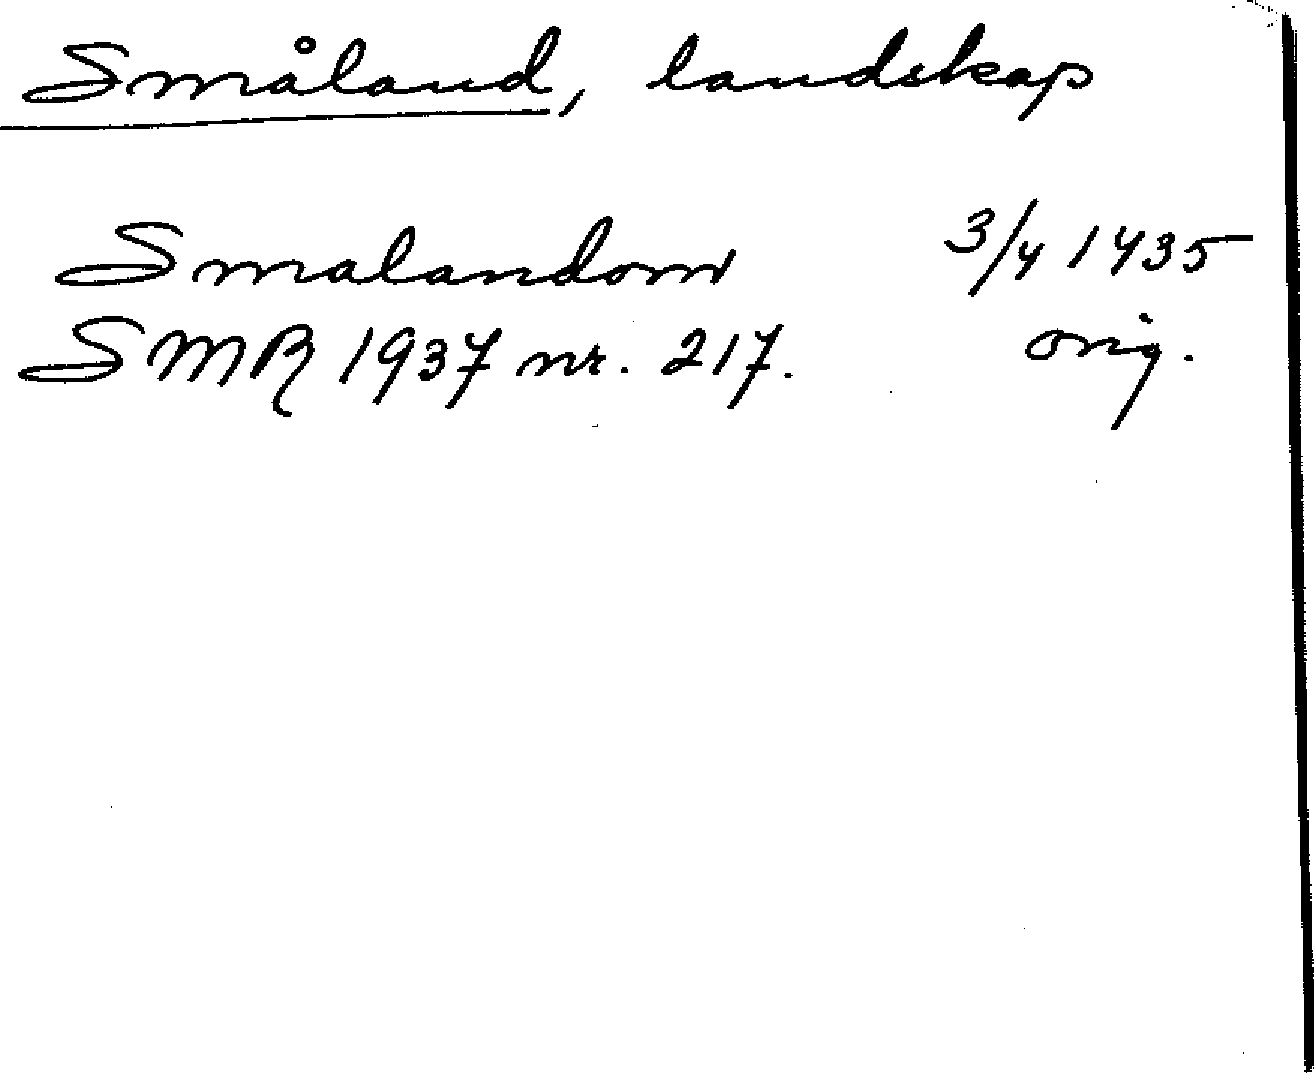 Småland, landskap
Smalandom 3/4 1435
SMR 1937 nr. 217. orig.